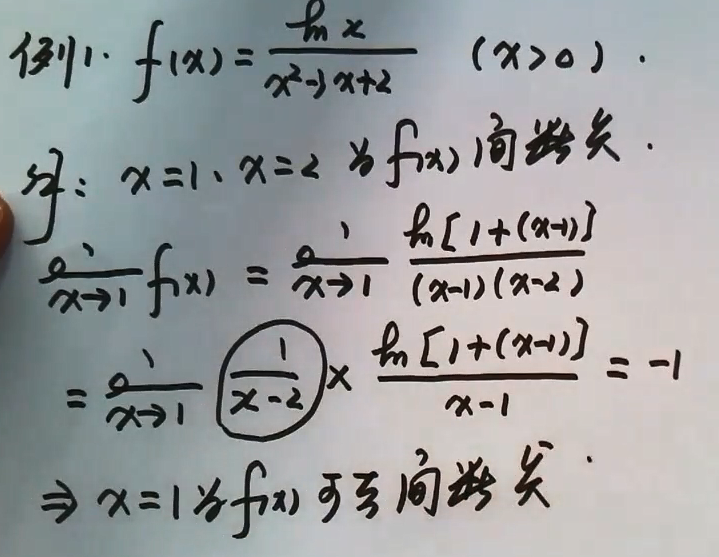 例1. f(x) = ln x / (x²-3x+2) (x>0).
解: x=1、x=2 为 f(x) 间断点.
lim x→1 f(x) = lim x→1 ln[1+(x-1)] / (x-1)(x-2)
= lim x→1 1/(x-2) × ln[1+(x-1)] / (x-1) = -1
⇒ x=1 为 f(x) 可去间断点.